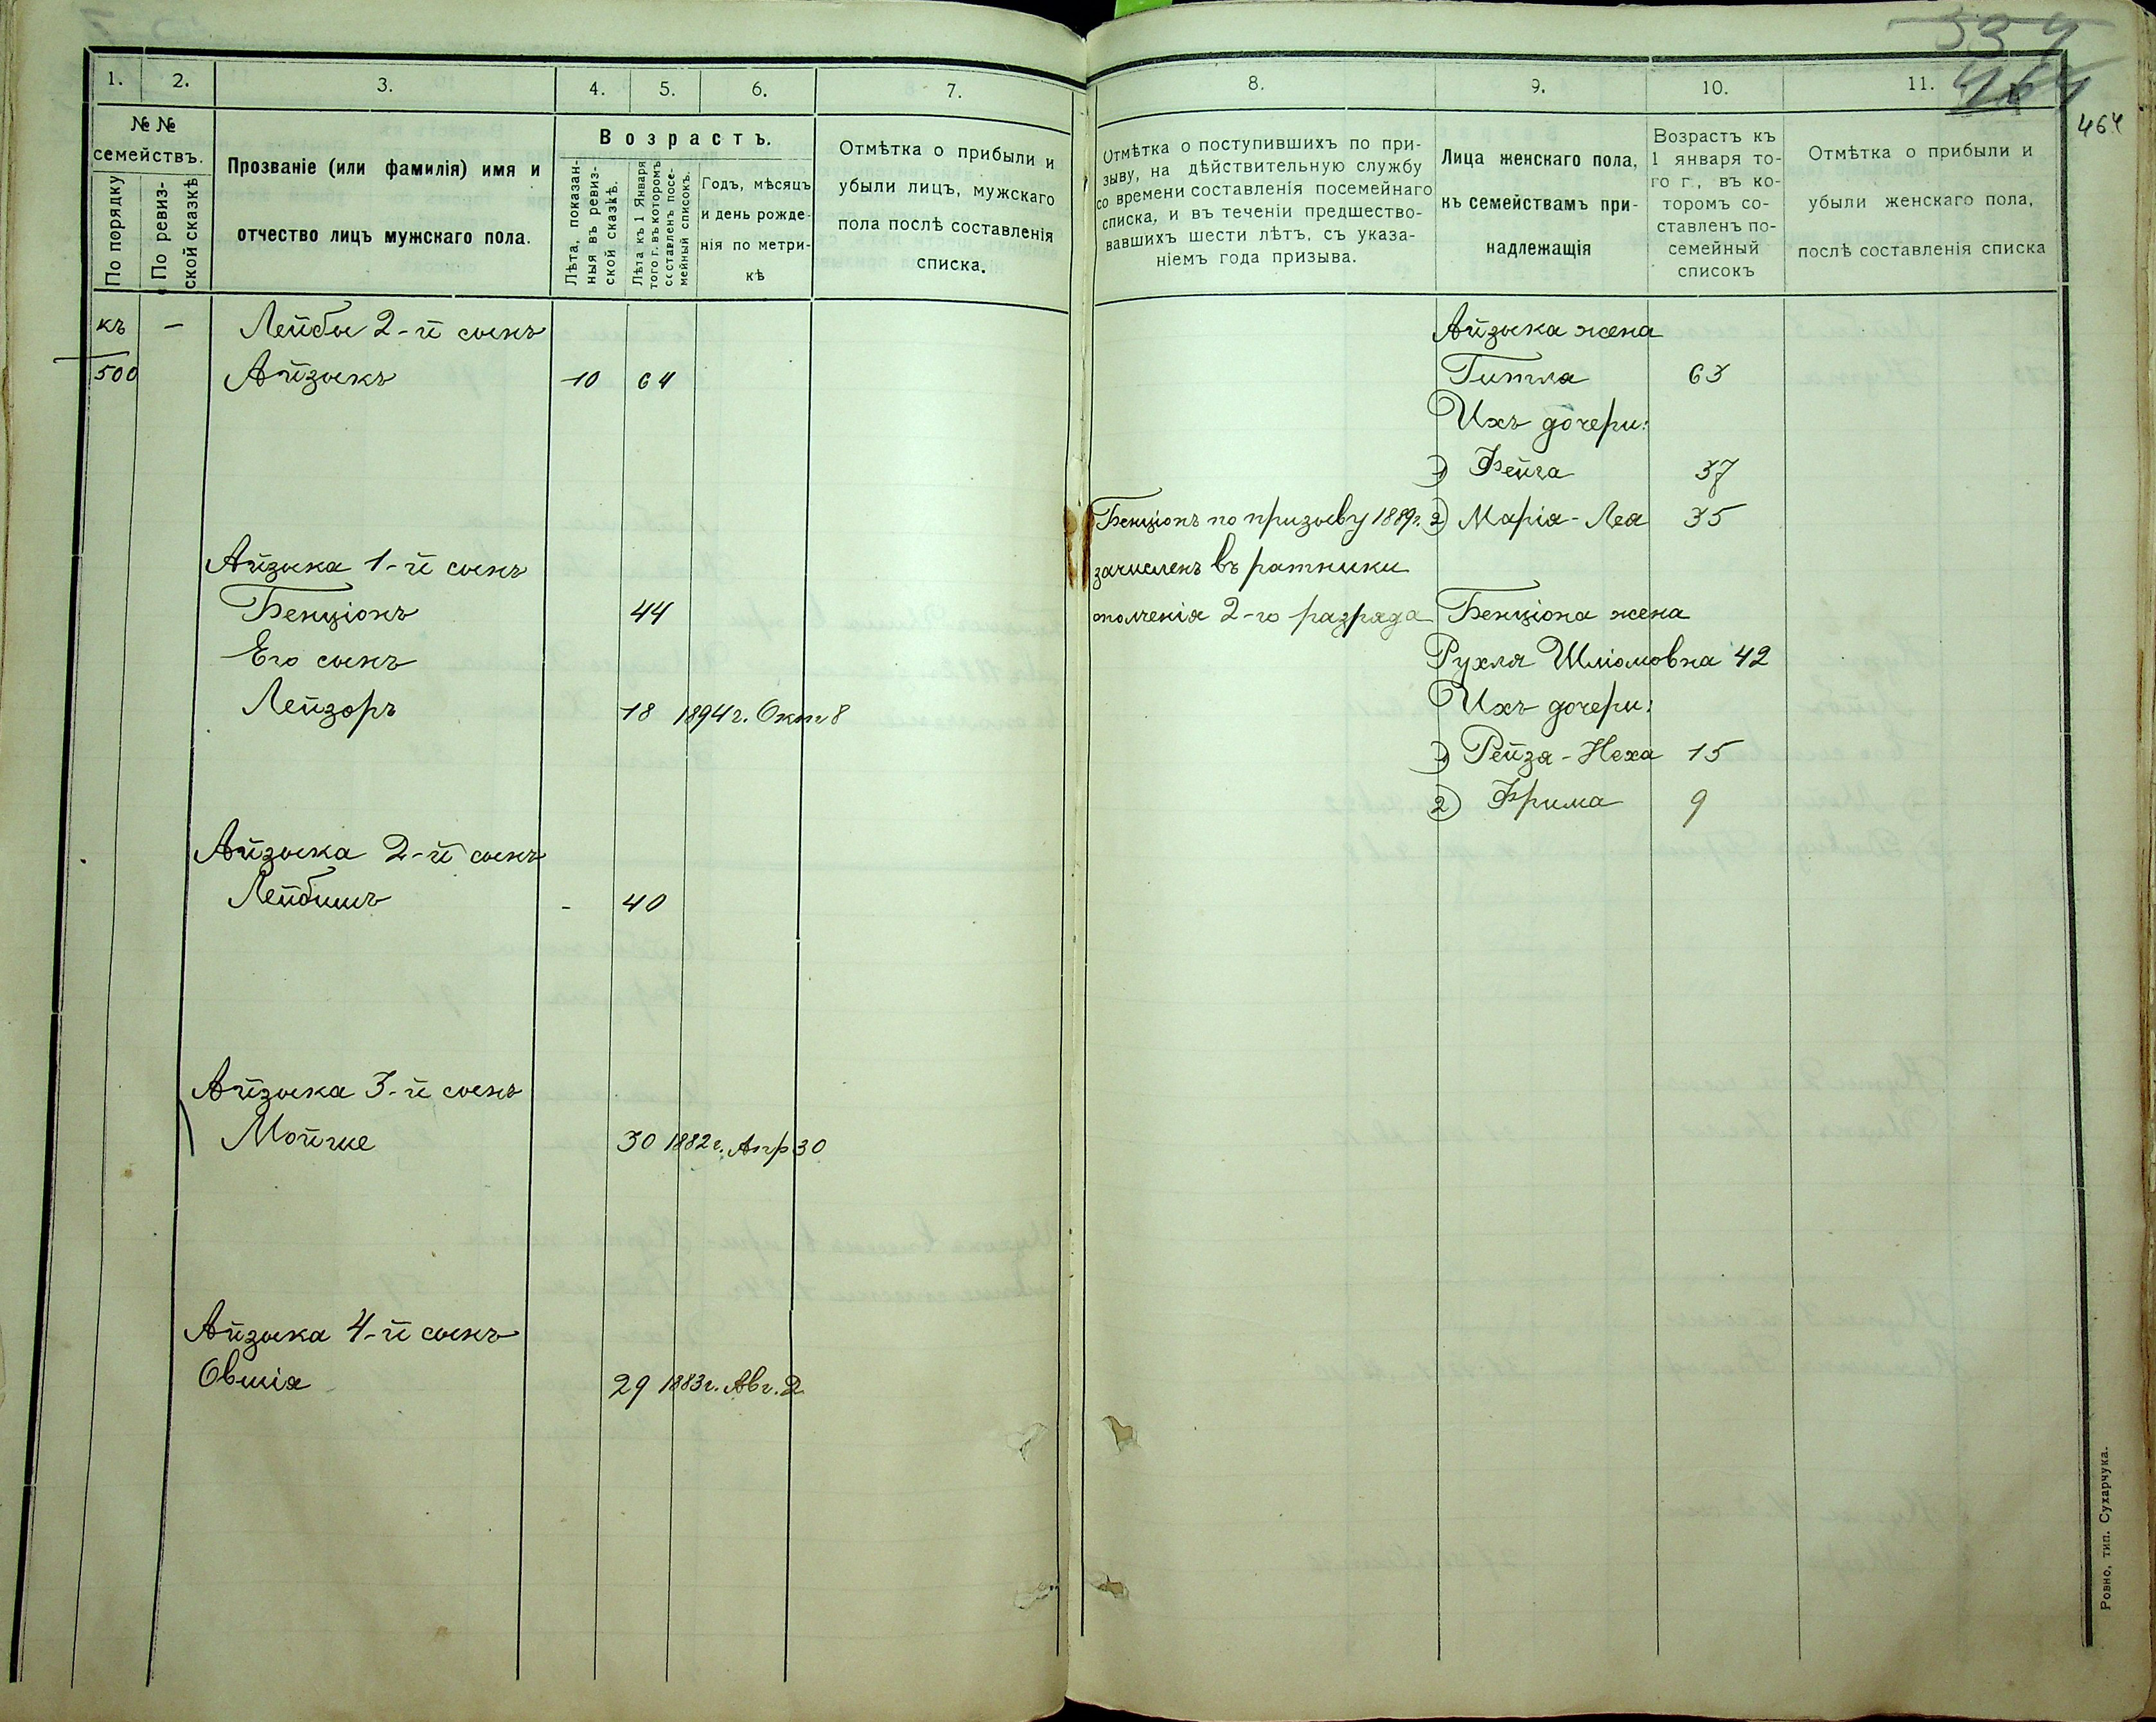 534
464
464
1.
2.
3.
4.
5.
6.
7.
№ №
семействъ.
По порядку
По ревиз-
ской сказкѣ
Прозваніе (или фамилія) имя и
отчество лицъ мужскаго пола.
Возрастъ.
Лѣта, показан-
ныя въ ревиз-
ской сказкѣ.
Лѣта къ 1 Января
того г. въ которомъ
составленъ посе-
мейный списокъ.
Годъ, мѣсяцъ
и день рожде-
нія по метри-
кѣ
Отмѣтка о прибыли и
убыли лицъ, мужскаго
пола послѣ составленія
списка.
къ - Лейбы 2-й сынъ
500 Айзыкъ 10 64
Айзыка 1-й сынъ
Бенціонъ 44
Его сынъ
Лейзоръ 18 1894 г. Окт 8
Айзыка 2-й сынъ
Лейбишъ - 40
Айзыка 3-й сынъ
Мойше 30 1882 г. Апр 30
Айзыка 4-й сынъ
Овшія 29 1883 г. Авг. 2
8.
9.
10.
11.
Отмѣтка о поступившихъ по при-
зыву, на дѣйствительную службу
со времени составленія посемейнаго
списка, и въ теченіи предшество-
вавшихъ шести лѣтъ, съ указа-
ніемъ года призыва.
Лица женскаго пола,
къ семействамъ при-
надлежащія
Возрастъ къ
1 января то-
го г., въ ко-
торомъ со-
ставленъ по-
семейный
списокъ
Отмѣтка о прибыли и
убыли женскаго пола,
послѣ составленія списка
Айзыка жена
Гитла 63
Ихъ дочери:
1) Фейга 37
Бенціонъ по призыву 1889 г. 2) Марія-Лея 35
зачисленъ въ ратники
ополченія 2-го разряда Бенціона жена
Рухля Шліомовна 42
Ихъ дочери:
1) Рейзя-Неха 15
2) Фрима 9
Ровно, тип. Сухарчука.